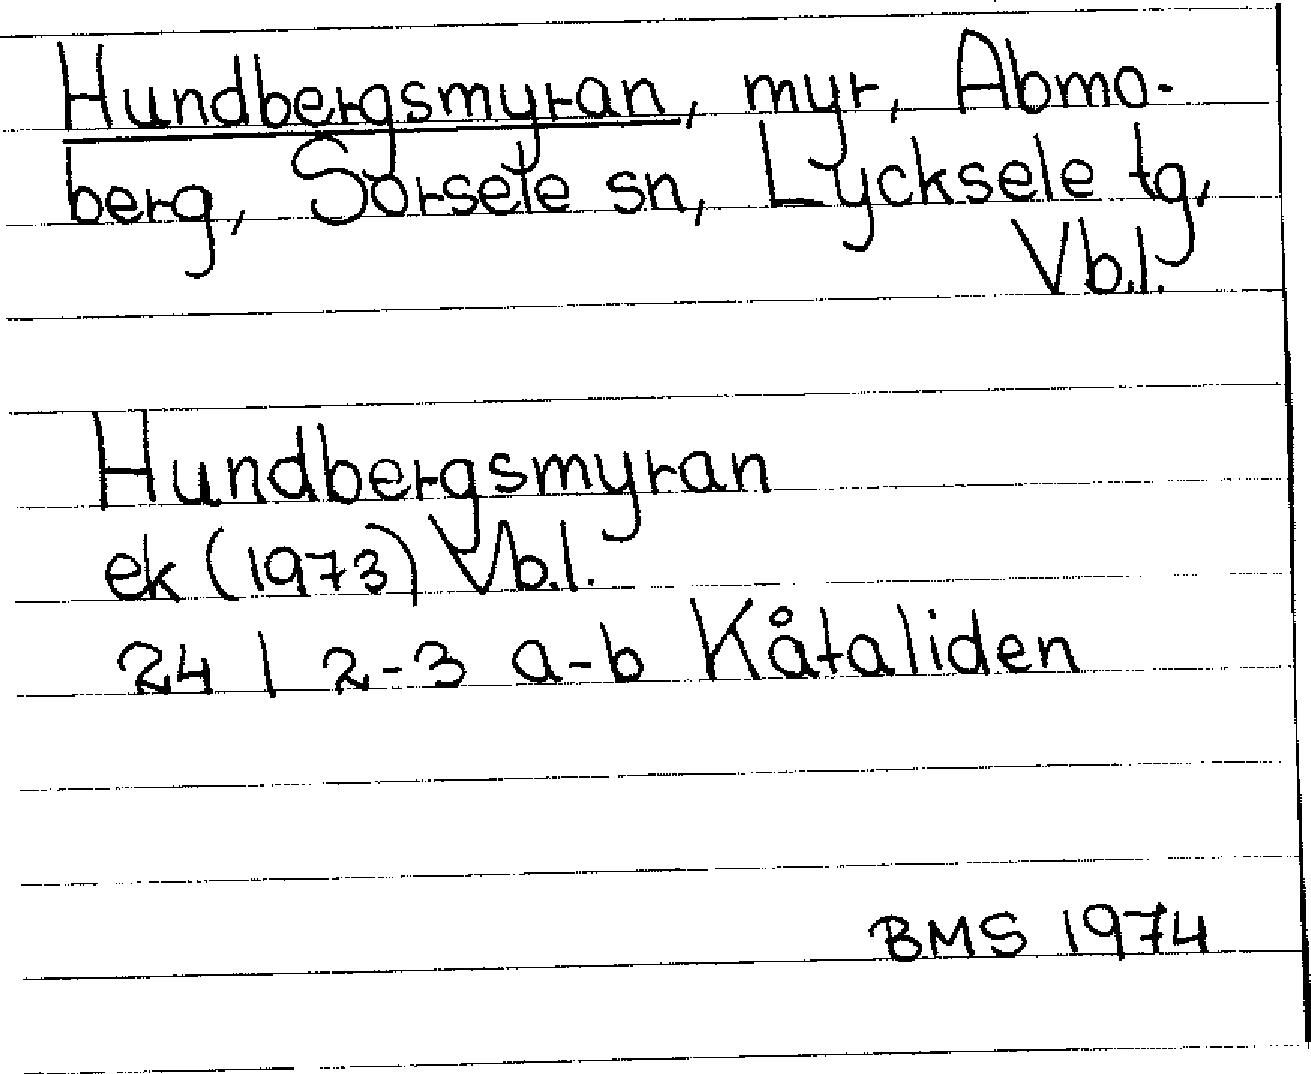 Hundbergsmyran, myr, Abmo-
berg, Sorsele sn, Lycksele tg,
Vb.l.
Hundbergsmyran
ek (1973) Vb.l.
24 I 2-3 a-b Kåtaliden
BMS 1974